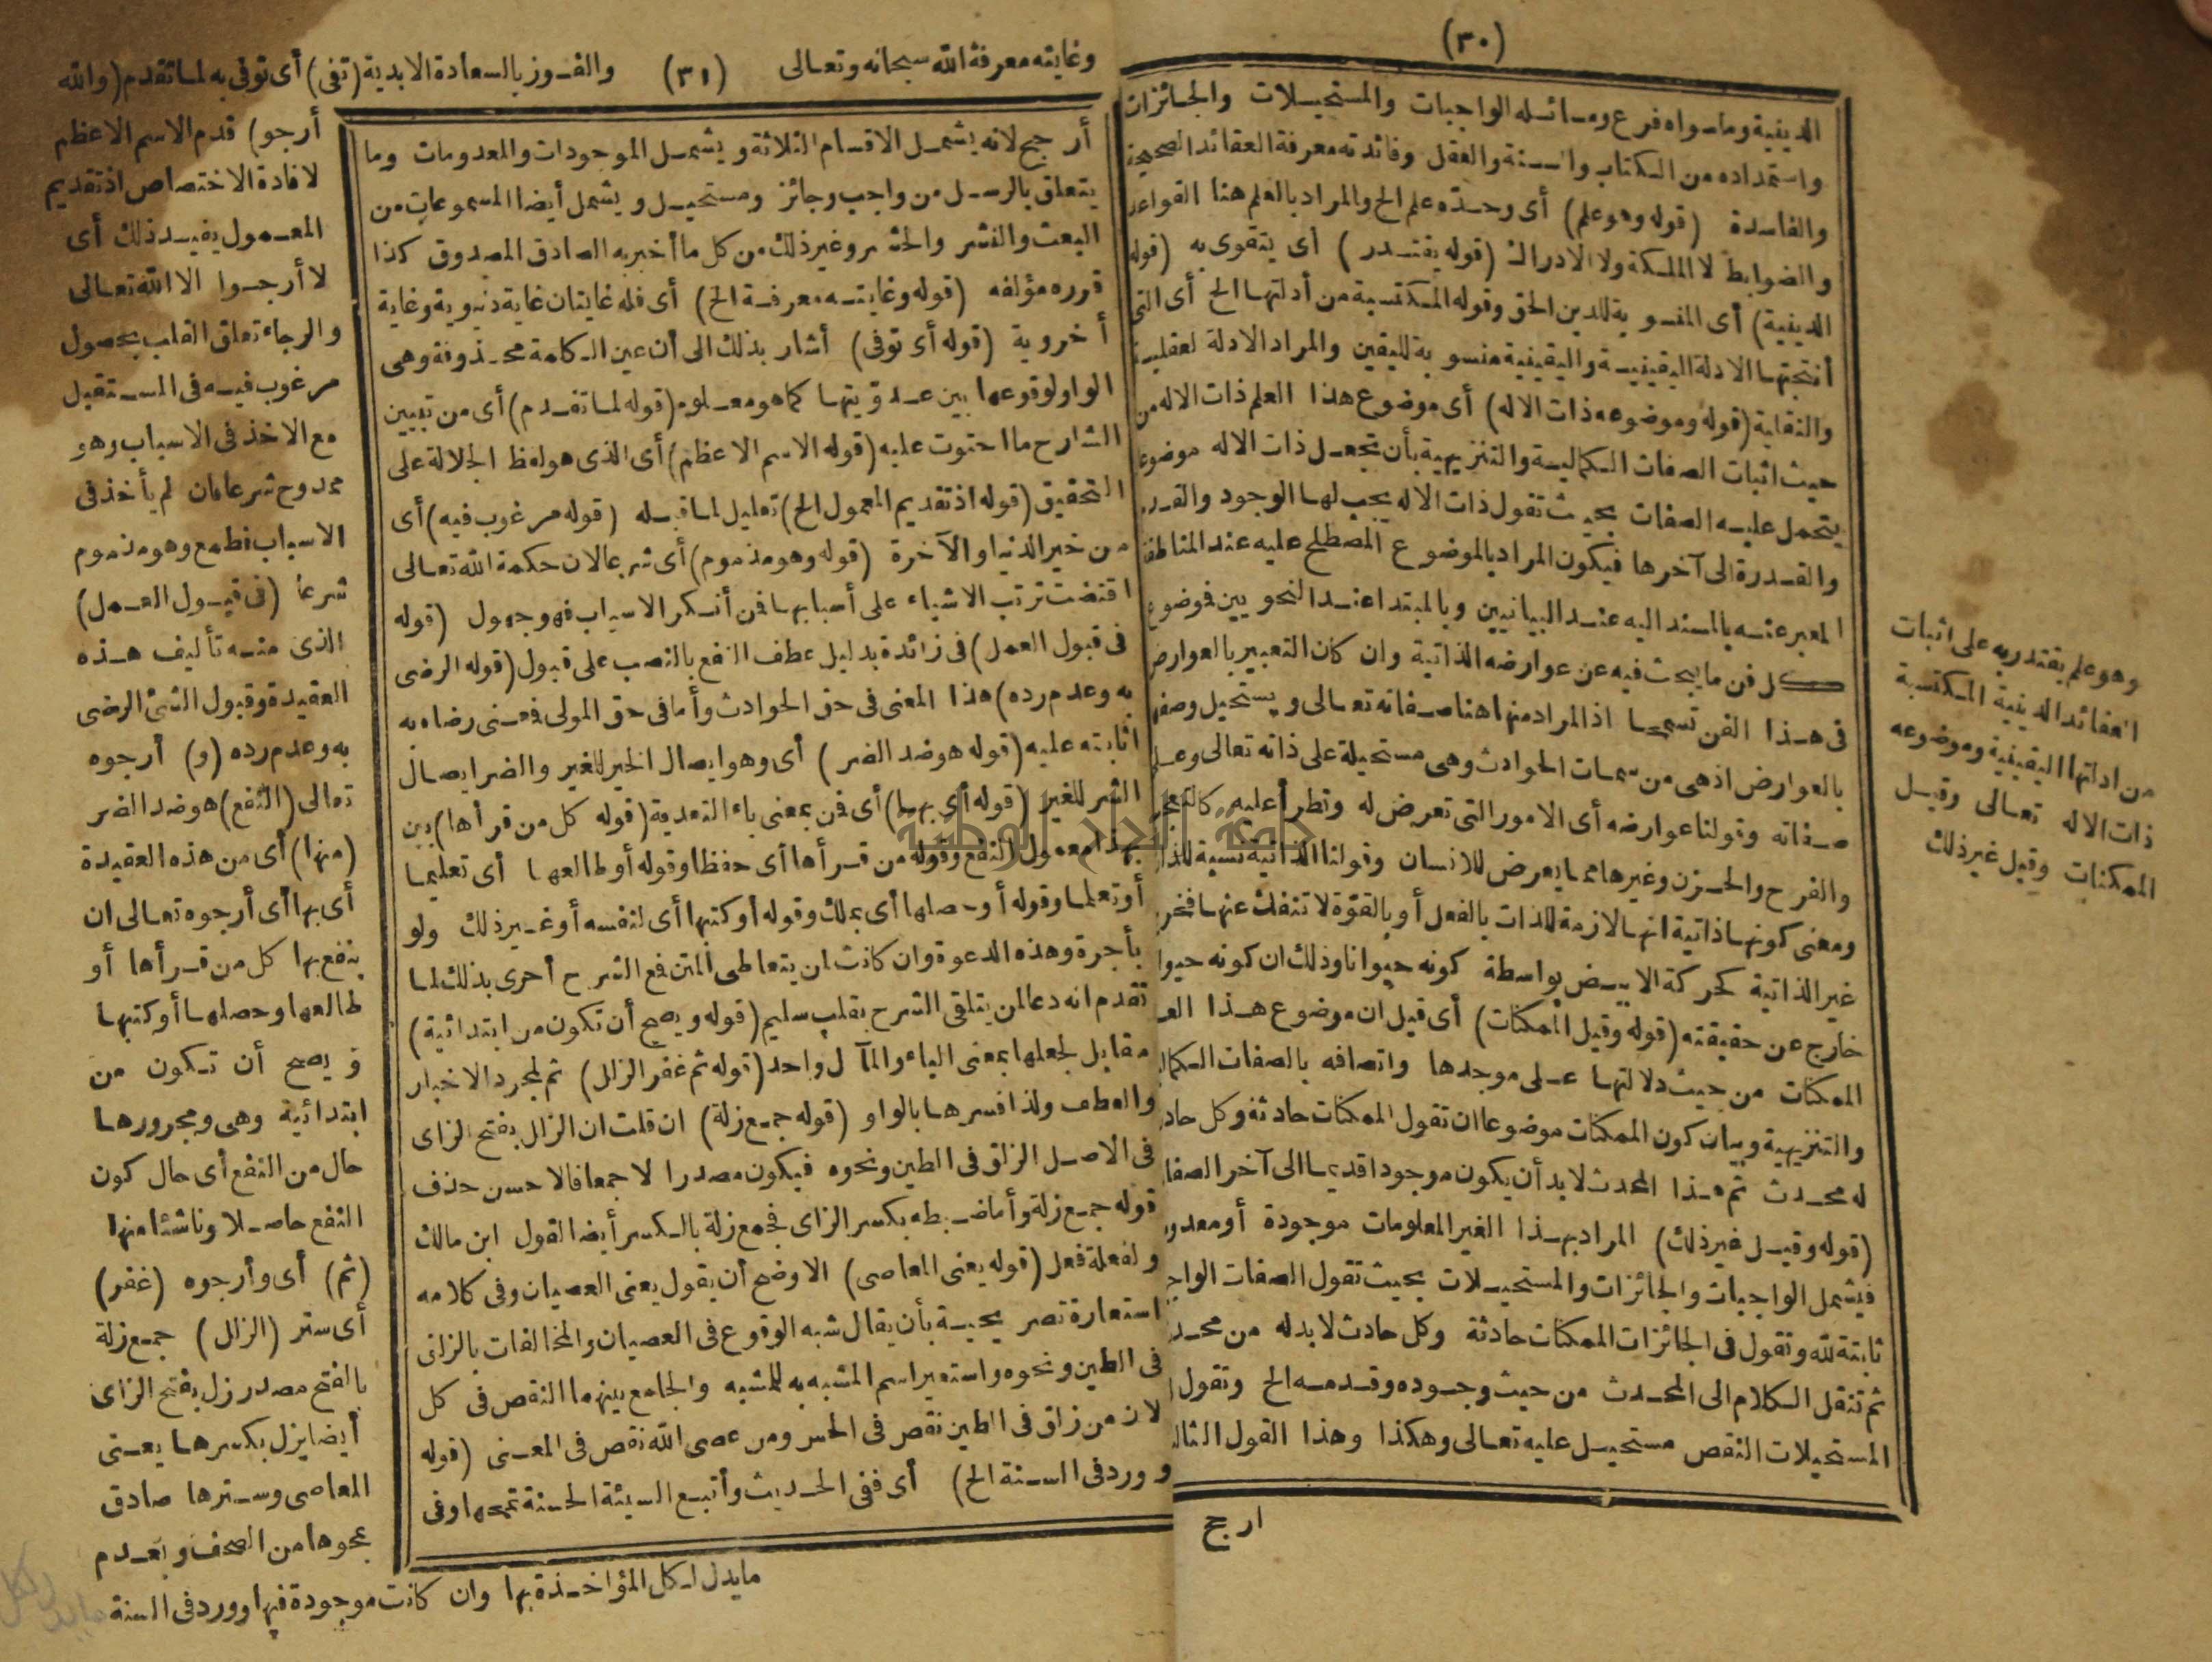 (٣٠)
الدينية وما سواه فرع ومسائله الواجبات والمستحيلات والجائزات
واستمداده من الكتاب والسنة والعقل وفائدته معرفة العقائد الصحيحة
والفاسدة (قوله وهو علم) أى وحده علم الخ والمراد بالعلم هنا القواعد
والضوابط لا الملكة ولا الادراك (قوله يقتدر) أى يتقوى به (قوله
الدينية) أى المنسوبة للدين الحق وقوله المكتسبة من أدلتها الخ أى التى
أنتجتها الادلة اليقينية واليقينية منسوبة لليقين والمراد الادلة العقلية
والنقلية (قوله وموضوعه ذات الاله) أى موضوع هذا العلم ذات الاله من
حيث اثبات الصفات الكمالية والتنزيهية بأن تجعل ذات الاله موضوعا
يتحمل عليه الصفات بحيث تقول ذات الاله يجب لها الوجود والقدم
والقدرة الى آخرها فيكون المراد بالموضوع المصطلح عليه عند المناطقة
المعبر عنه بالمسند اليه عند البيانيين وبالمبتدا عند النحويين فموضوع
كل فن ما يبحث فيه عن عوارضه الذاتية وان كان التعبير بالعوارض
فى هذا الفن تسمحا اذ المراد منها هنا صفاته تعالى ويستحيل وصفها
بالعوارض اذ هى من سمات الحوادث وهى مستحيلة على ذاته تعالى وعلى
صفاته وقولنا عوارضه أى الامور التى تعرض له وتطرأ عليه كالتعجب
والفرح والحزن وغيرها مما يعرض للانسان وقولنا الذاتية نسبة للذات
ومعنى كونها ذاتية انها لازمة للذات بالفعل أو بالقوة لا تنفك عنها فخرج
غير الذاتية كحركة الابيض بواسطة كونه حيوانا وذلك ان كونه حيوانا
خارج عن حقيقته (قوله وقيل الممكنات) أى قيل ان موضوع هذا العلم
الممكنات من حيث دلالتها على موجدها واتصافه بالصفات الكمالية
والتنزيهية وبيان كون الممكنات موضوعا ان تقول الممكنات حادثة وكل حادث
له محدث ثم هذا المحدث لابد أن يكون موجودا قديما الى آخر الصفات
(قوله وقيل غير ذلك) المراد بهذا الغير المعلومات موجودة أو معدومة
فيشمل الواجبات والجائزات والمستحيلات بحيث تقول الصفات الواجبة
ثابتة لله وتقول فى الجائزات الممكنات حادثة وكل حادث لابد له من محدث
ثم تنقل الكلام الى المحدث من حيث وجوده وقدمه الخ وتقول
المستحيلات النقص مستحيل عليه تعالى وهكذا وهذا القول الثالث
ارجح
وهو علم يقتدر به على اثبات
العقائد الدينية المكتسبة
من ادلتها اليقينية وموضوعه
ذات الاله تعالى وقيل
الممكنات وقيل غير ذلك
وغايته معرفة الله سبحانه وتعالى (٣١) والفوز بالسعادة الابدية (تفى) أى توفى به لما تقدم (والله
أرجو) قدم الاسم الاعظم
لافادة الاختصاص اذ تقديم
المعمول يفيد ذلك أى
لا أرجوا الا الله تعالى
والرجاء تعلق القلب بحصول
مرغوب فيه فى المستقبل
مع الاخذ فى الاسباب وهو
ممدوح شرعا فان لم يأخذ فى
الاسباب فطمع وهو مذموم
شرعا (فى قبول العمل)
الذى منه تأليف هذه
العقيدة وقبول الشئ الرضى
به وعدم رده (و) أرجوه
تعالى (النفع) هو ضد الضر
(منها) أى من هذه العقيدة
أى بها أى أرجوه تعالى ان
ينفع بها كل من قرأها أو
طالعها وحصلها أو كتبها
ويصح أن تكون من
ابتدائية وهى ومجرورها
حال من النفع أى حال كون
النفع حاصلا وناشئا منها
(ثم) أى وأرجوه (غفر)
أى ستر (الزلل) جمع زلة
بالفتح مصدر زل بفتح الزاى
أيضا يزل بكسرها يعنى
المعاصى وسترها صادق
بمحوها من الصحف وبعدم
المؤاخذة بها وان كانت موجودة فيها وورد فى السنة ما يدل لكل
أرجح لانه يشمل الاقسام الثلاثة ويشمل الموجودات والمعدومات وما
يتعلق بالرسل من واجب وجائز ومستحيل ويشمل أيضا المسموعات من
البعث والنشر والحشر وغير ذلك من كل ما أخبر به الصادق المصدوق كذا
قرره مؤلفه (قوله وغايته معرفة الخ) أى فله غايتان غاية دنيوية وغاية
أخروية (قوله أى توفى) أشار بذلك الى أن عين الكلمة محذوفة وهى
الواو لوقوعها بين عدوتيها كما هو معلوم (قوله لما تقدم) أى من تبيين
الشارح ما احتوت عليه (قوله الاسم الاعظم) أى الذى هو لفظ الجلالة على
التحقيق (قوله اذ تقديم المعمول الخ) تعليل لما قبله (قوله مرغوب فيه) أى
من خير الدنيا والآخرة (قوله وهو مذموم) أى شرعا لان حكمة الله تعالى
اقتضت ترتب الاشياء على أسبابها فمن أنكر الاسباب فهو جهول (قوله
فى قبول العمل) فى زائدة بدليل عطف النفع بالنصب على قبول (قوله الرضى
به وعدم رده) هذا المعنى فى حق الحوادث وأما فى حق المولى فمعنى رضاه به
اثابته عليه (قوله هو ضد الضر) أى وهو ايصال الخير للغير والضر ايصال
الشر للغير (قوله أى بها) أى فمن بمعنى باء التعدية (قوله كل من قرأها) بين
بهذا معمول النفع وقوله من قرأها أى حفظا وقوله أو طالعها أى تعليما
أو تعلما وقوله أو حصلها أى بملك وقوله أو كتبها أى لنفسه أو غير ذلك ولو
بأجرة وهذه الدعوة وان كانت لن يتعاطى المتن فع الشرح أحرى بذلك لما
تقدم انه دعا لمن يتلقى الشرح بقلب سليم (قوله ويصح أن تكون من ابتدائية)
مقابل لجعلها بمعنى الباء والمآل واحد (قوله ثم غفر الزلل) ثم لمجرد الاخبار
والعطف ولذا فسرها بالواو (قوله جمع زلة) ان قلت ان الزلل بفتح الزاى
فى الاصل الزلق فى الطين ونحوه فيكون مصدرا لا جمعا فالاحسن حذف
قوله جمع زلة وأما ضبطه بكسر الزاى فجمع زلة بالكسر أيضا لقول ابن مالك
ولفعلة فعل (قوله يعنى المعاصى) الاوضح أن يقول يعنى العصيان وفى كلامه
استعارة تصريحية بأن يقال شبه الوقوع فى العصيان والمخالفات بالزلق
فى الطين ونحوه واستعير اسم المشبه به للمشبه والجامع بينهما النقص فى كل
لان من زلق فى الطين نقص فى الحس ومن عصى الله نقص فى المعنى (قوله
وورد فى السنة الخ) أى ففى الحديث وأتبع السيئة الحسنة تمحها وفى
جامعة النجاح الوطنية